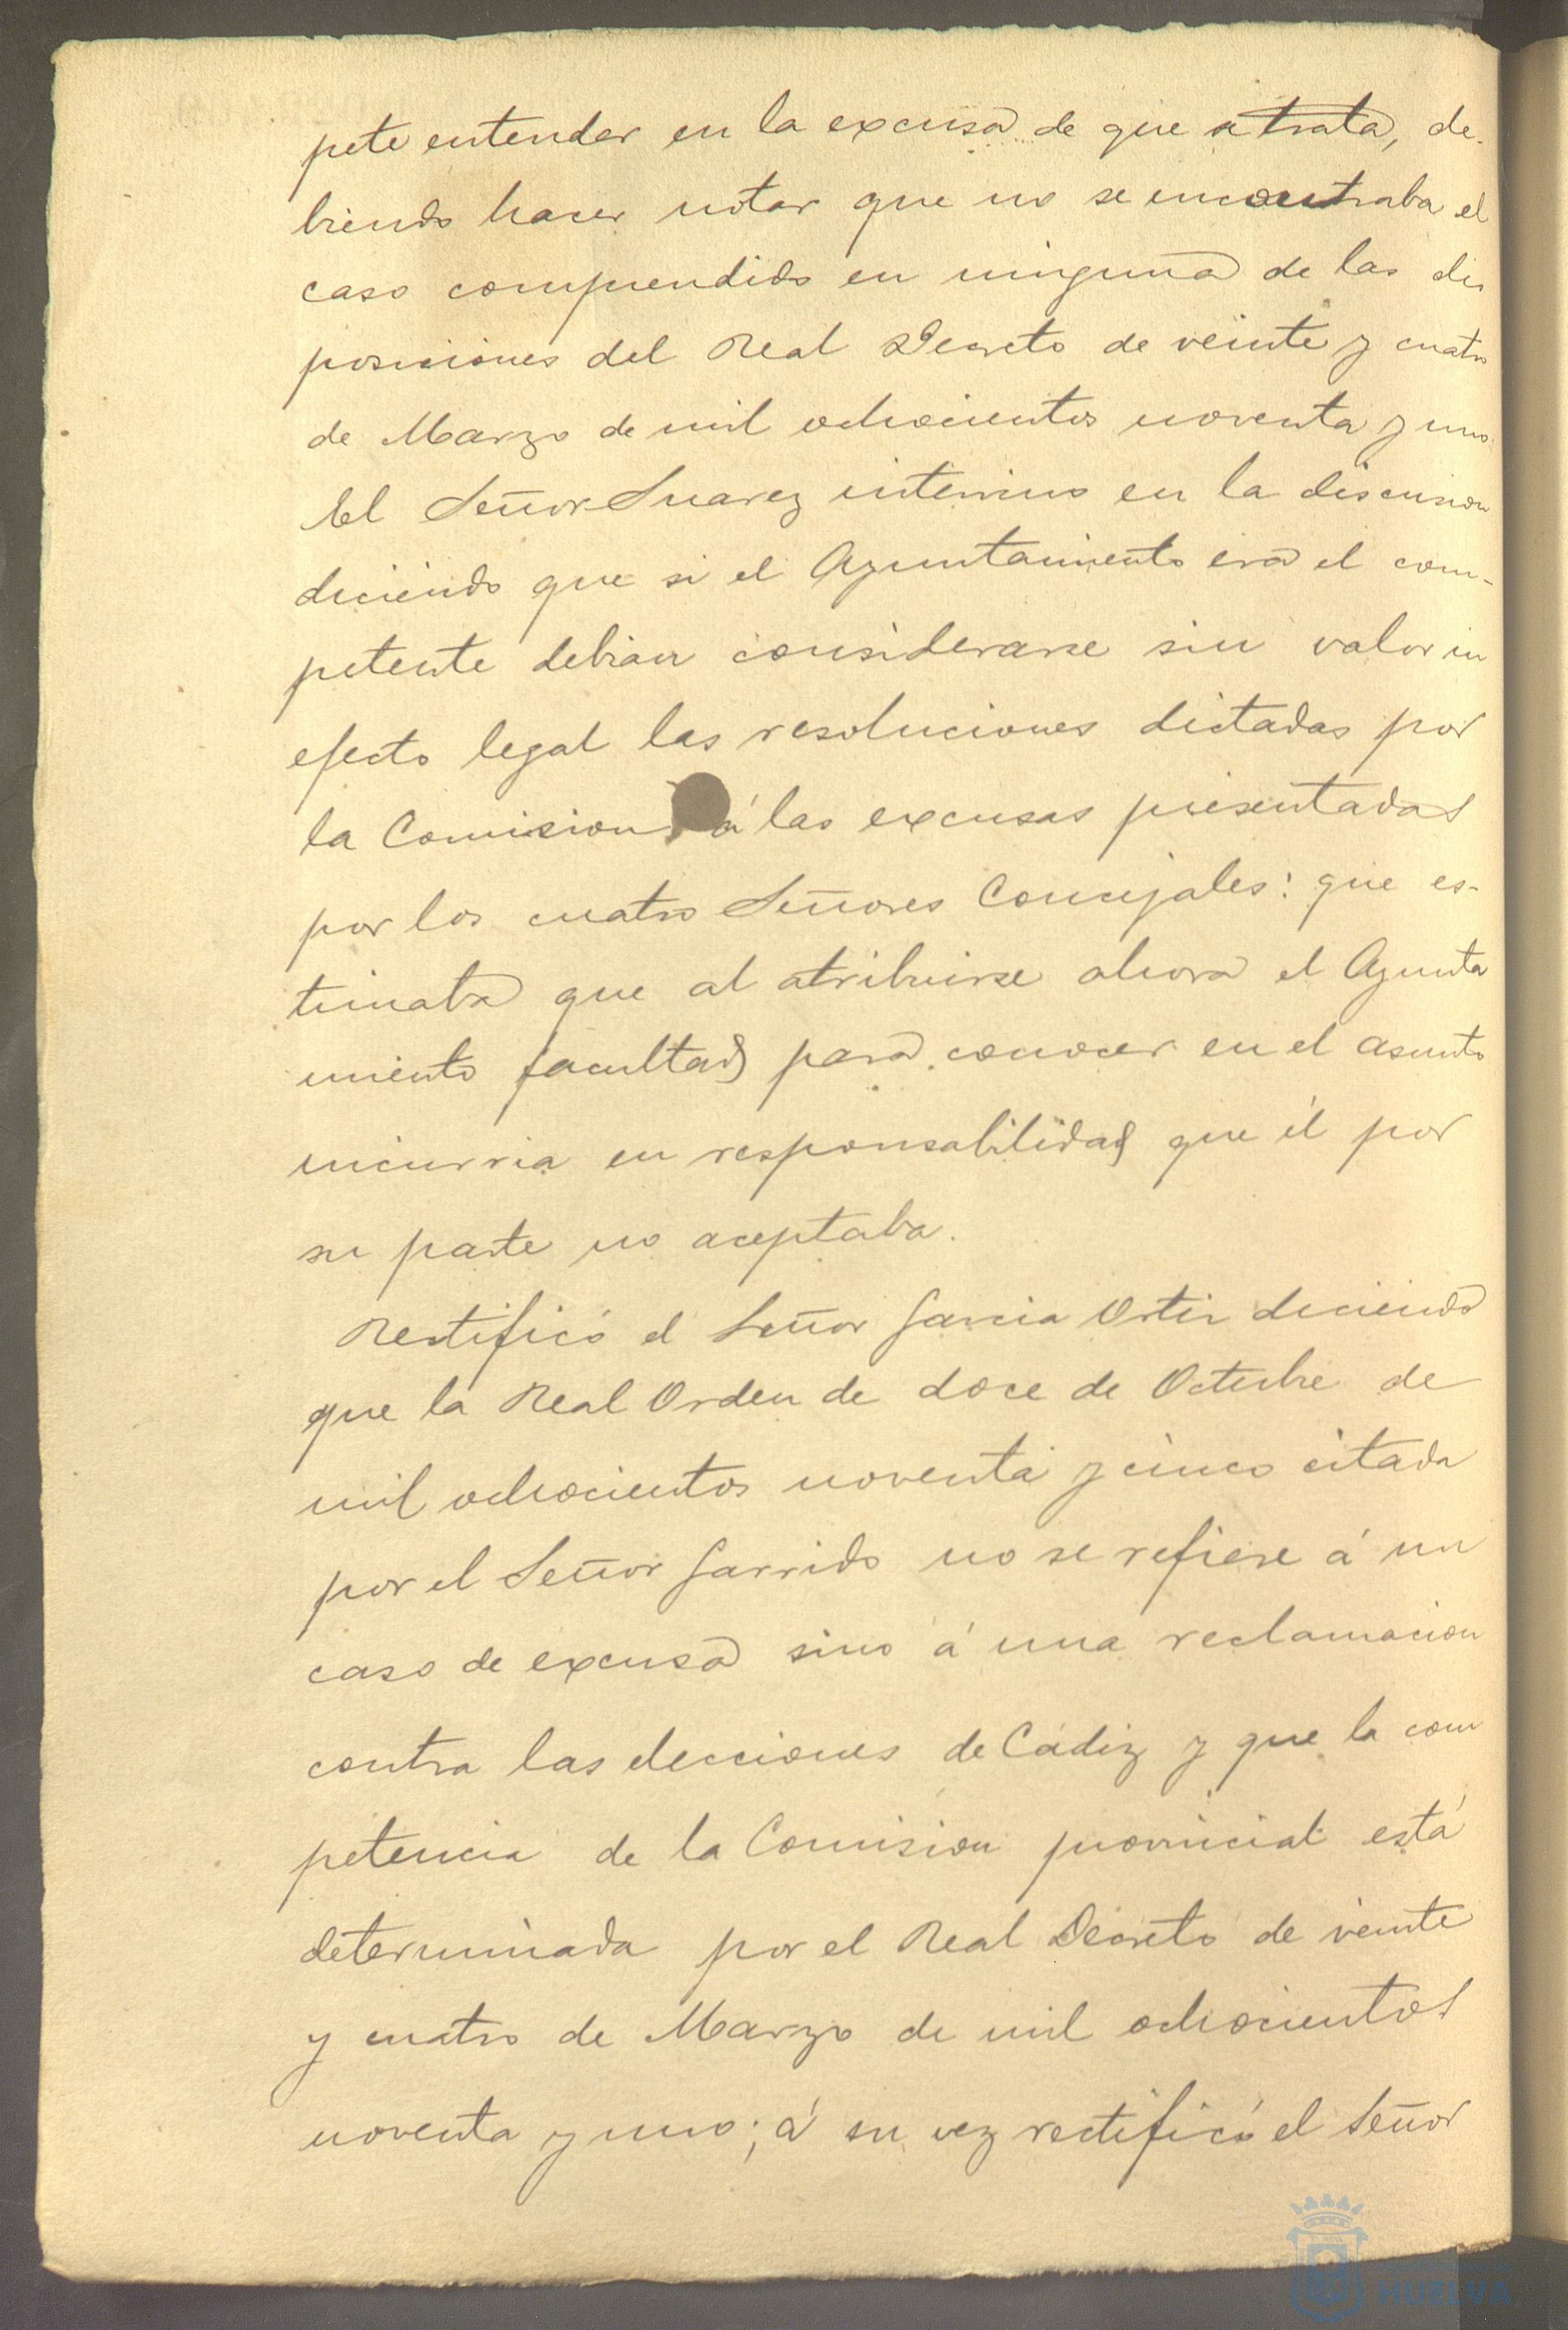 pete entender en la excusa de que se trata, de-
biendo hacer notar que no se encontraba el
caso comprendido en ninguna de las dis
posiciones del Real Decreto de veinte y cuatro
de Marzo de mil ochocientos noventa y uno.
El Señor Suarez intervino en la discusion
diciendo que si el Ayuntamiento era el com-
petente debian considerarse sin valor ni
efecto legal las resoluciones dictadas por
la Comision á las excusas presentadas
por los cuatro Señores Concejales: que es-
timaba que al atribuirse ahora el Ayunta
miento facultad para conocer en el asunto
incurria en responsabilidad que él por
su parte no aceptaba.
Rectificó el Señor Garcia Ortiz diciendo
que la Real Orden de doce de Octubre de
mil ochocientos noventa y cinco citada
por el Señor Garrido no se refiere á un
caso de excusa sino á una reclamacion
contra las elecciones de Cádiz y que la com
petencia de la Comision provincial está
determinada por el Real Decreto de veinte
y cuatro de Marzo de mil ochocientos
noventa y uno; á su vez rectificó el Señor
HUELVA